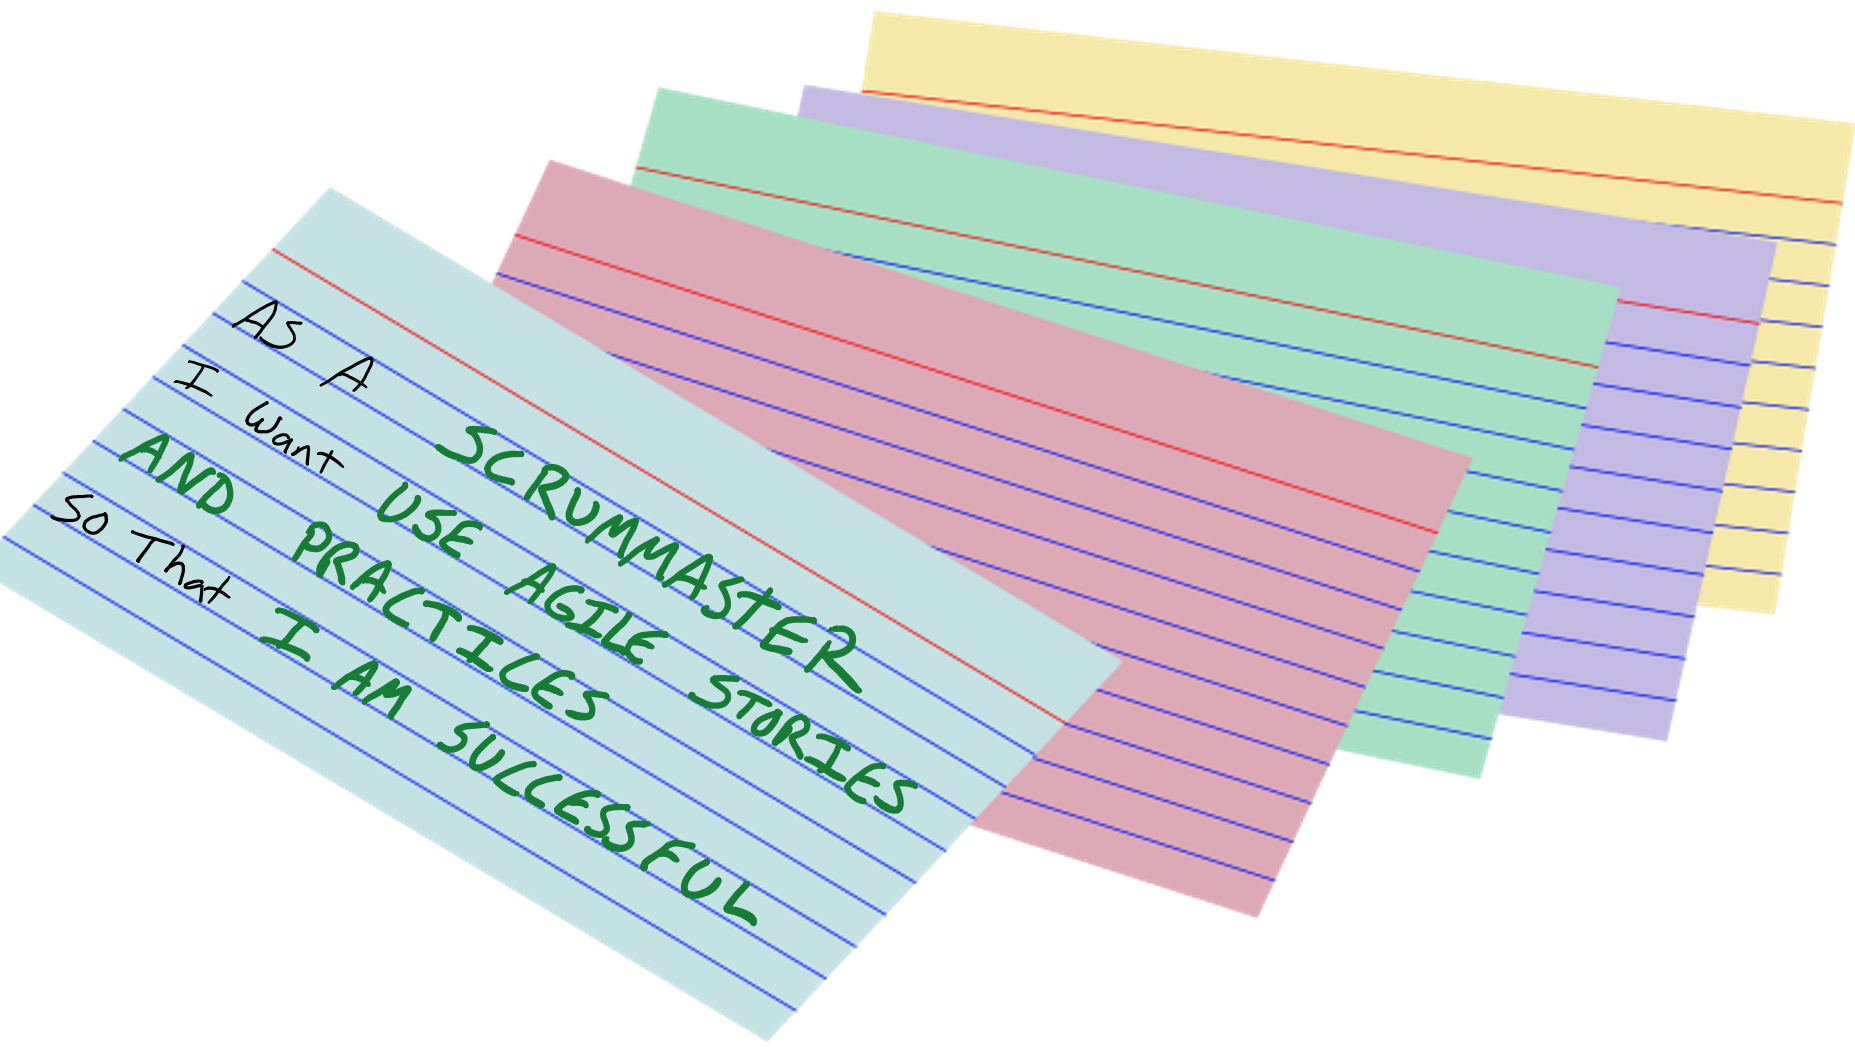 As A SCRUMMASTER
I want USE AGILE STORIES
AND PRACTICES
So That I AM SUCCESSFUL